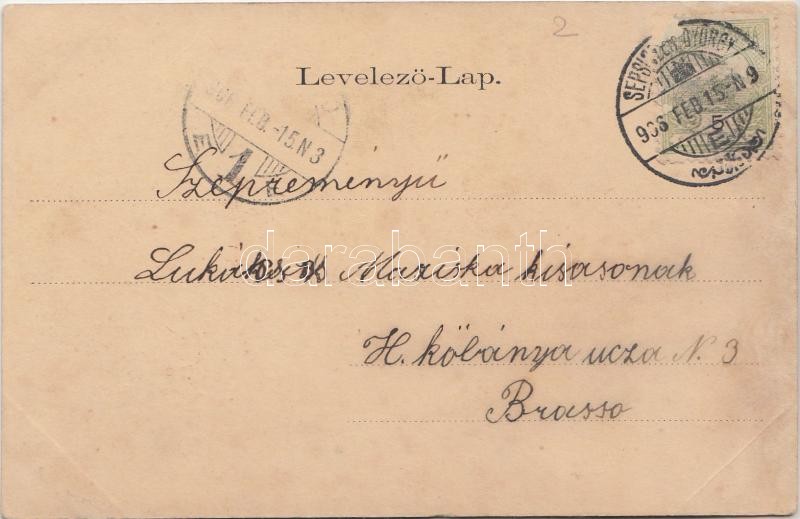 2
Levelező-Lap.
SEPSISZENTGYÖRGY
906 FEB 15-N 9
5
906 FEB.-15.N 3
E 1
Szépreményű
Mariska kisasonak
H. kőbánya ucza N. 3
Brasso
darabanth